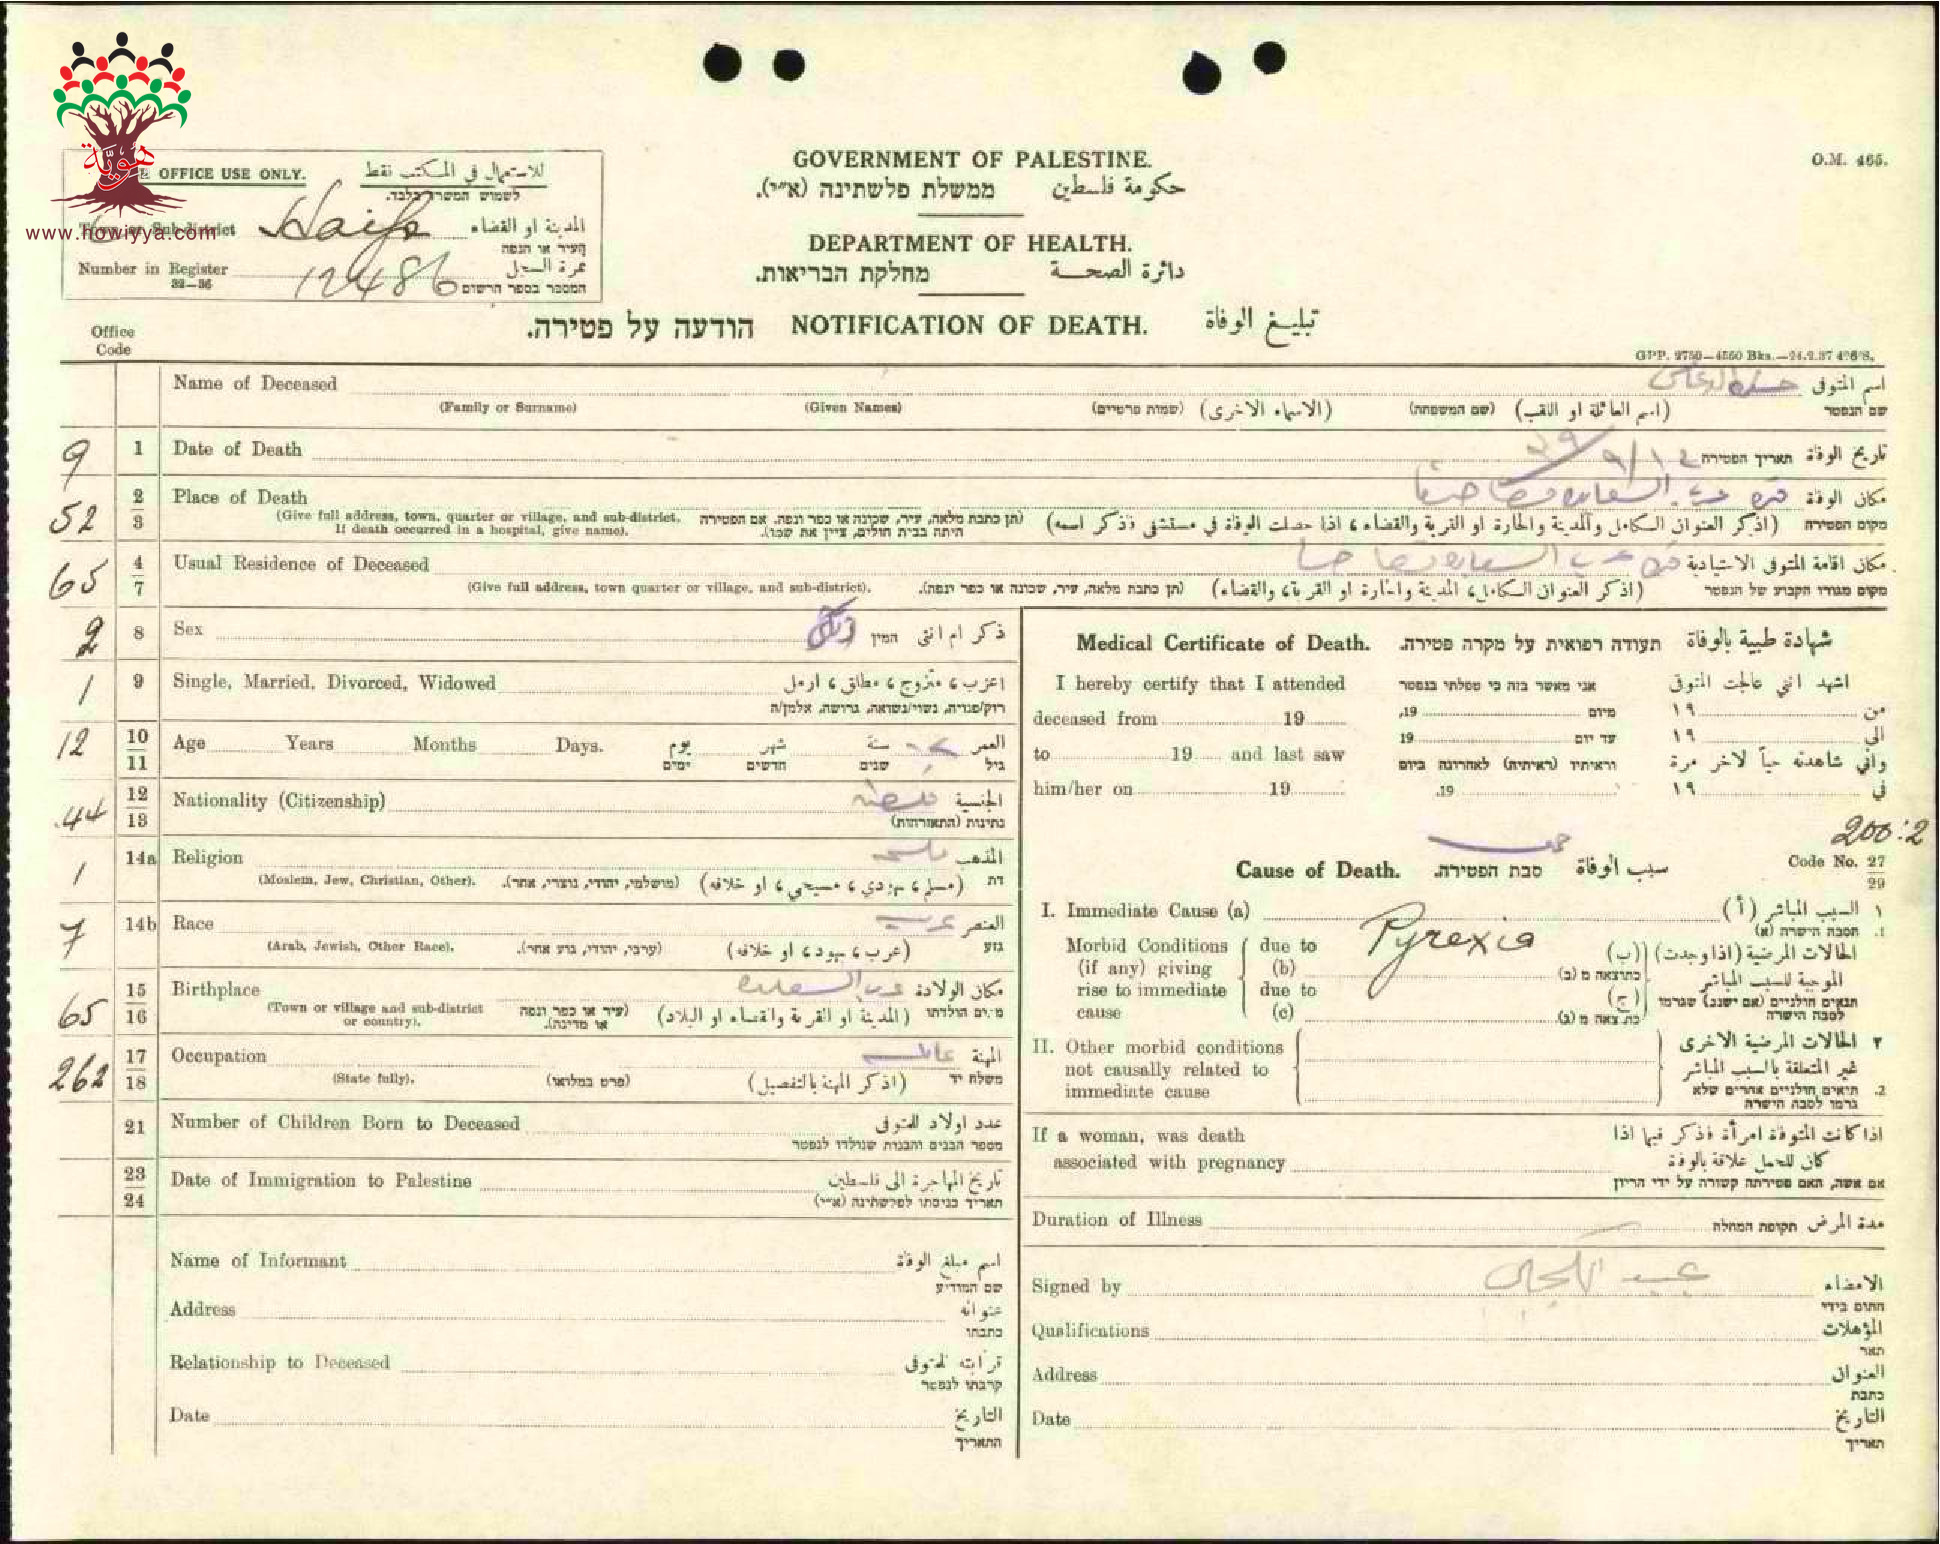 هوية
www.howiyya.com
OFFICE USE ONLY. للاستعمال في المكتب فقط
Town or Sub-district Haifa المدينة او القضاء
העיר או הנפה
Number in Register 12486 نمرة السجل
32—36 המספר בספר הרשום
GOVERNMENT OF PALESTINE.
ממשלת פלשתינה (א״י). حكومة فلسطين
DEPARTMENT OF HEALTH.
מחלקת הבריאות. دائرة الصحة
O.M. 465.
הודעה על פטירה. NOTIFICATION OF DEATH. تبليغ الوفاة
Office
Code
Name of Deceased اسم المتوفى
(Family or Surname) (Given Names) (שמות פרטיים) (الاسماء الاخرى) (שם המשפחה) (اسم العائلة او اللقب) שם הנפטר
9 1 Date of Death תאריך הפטירה تاريخ الوفاة
52 2 3 Place of Death مكان الوفاة
(Give full address, town, quarter or village, and sub-district. If death occurred in a hospital, give name).
(תן כתבת מלאה, עיר, שכונה או כפר ונפה. אם הפטירה היתה בבית חולים, ציין את שמו).
(اذكر العنوان الكامل والمدينة والحارة او القرية والقضاء، اذا حصلت الوفاة في مستشفى فذكر اسمه) מקום הפטירה
65 4 7 Usual Residence of Deceased مكان اقامة المتوفى الاعتيادية
(Give full address, town quarter or village, and sub-district). (תן כתבת מלאה, עיר, שכונה או כפר ונפה). (اذكر العنوان الكامل، المدينة والحارة او القرية، والقضاء) מקום מגוריו הקבוע של הנפטר
2 8 Sex המין ذكر ام انثى
1 9 Single, Married, Divorced, Widowed اعزب، متزوج، مطلق، ارمل
רוק/פנויה, נשוי/נשואה, גרושה, אלמן/ה
12 10 11 Age Years Months Days. يوم شهر سنة العمر
ימים חדשים שנים גיל
44 12 13 Nationality (Citizenship) الجنسية
נתינות (התאזרחות)
1 14a Religion المذهب
(Moslem, Jew, Christian, Other). (מושלמי, יהודי, נוצרי, אחר). (مسلم، يهودي، مسيحي، او خلافه) דת
7 14b Race عرب العنصر
(Arab, Jewish, Other Race). (ערבי, יהודי, גזע אחר). (عرب، يهود، او خلافه) גזע
65 15 16 Birthplace مكان الولادة
(Town or village and sub-district or country). (עיר או כפר ונפה או מדינה). (المدينة او القرية والقضاء او البلاد) מקום הולדתו
262 17 18 Occupation المهنة
(State fully). (פרט במלואו) (اذكر المهنة بالتفصيل) משלח יד
21 Number of Children Born to Deceased عدد اولاد المتوفى
מספר הבנים והבנות שנולדו לנפטר
23 24 Date of Immigration to Palestine تاريخ المهاجرة الى فلسطين
תאריך כניסתו לפלשתינה (א״י)
Name of Informant اسم مبلغ الوفاة
שם המודיע
Address عنوانه
כתבתו
Relationship to Deceased قرابته للمتوفى
קרבתו לנפטר
Date التاريخ
התאריך
Medical Certificate of Death. תעודה רפואית על מקרה פטירה. شهادة طبية بالوفاة
I hereby certify that I attended אני מאשר בזה כי טפלתי בנפטר اشهد انني عالجت المتوفى
deceased from 19 19, מיום ١٩ من
to 19 and last saw 19 עד יום ١٩ الى
וראיתיו (ראיתיה) לאחרונה ביום واني شاهدته حياً لاخر مرة
him/her on 19 19. ١٩ في
200:2
Cause of Death. סבת הפטירה. سبب الوفاة Code No. 27 29
I. Immediate Cause (a) السبب المباشر (أ) ١
הסבה הישרה (א) 1.
Pyrexia
Morbid Conditions due to الحالات المرضية (اذا وجدت) (ب)
(if any) giving (b) כתוצאה מ (ב) الموجبة للسبب المباشر
rise to immediate due to (ج) תנאים חולניים (אם ישנם) שגרמו
cause (c) לסבה הישרה
II. Other morbid conditions ٢ الحالات المرضية الاخرى
not causally related to غير المتعلقة بالسبب المباشر
immediate cause תנאים חולניים אחרים שלא 2.
גרמו לסבה הישרה
If a woman, was death اذا كانت المتوفاة امرأة فذكر فيما اذا
associated with pregnancy كان للحمل علاقة بالوفاة
אם אשה, האם פטירתה קשורה על ידי הריון
Duration of Illness תקופת המחלה مدة المرض
Signed by الامضاء
חתום בידי
Qualifications المؤهلات
תאר
Address العنوان
כתבת
Date التاريخ
תאריך